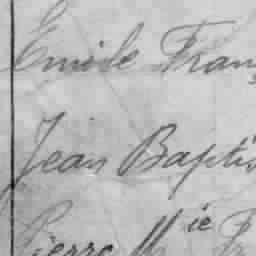 Emile Fran
Jean Baptis
Pierre M ie